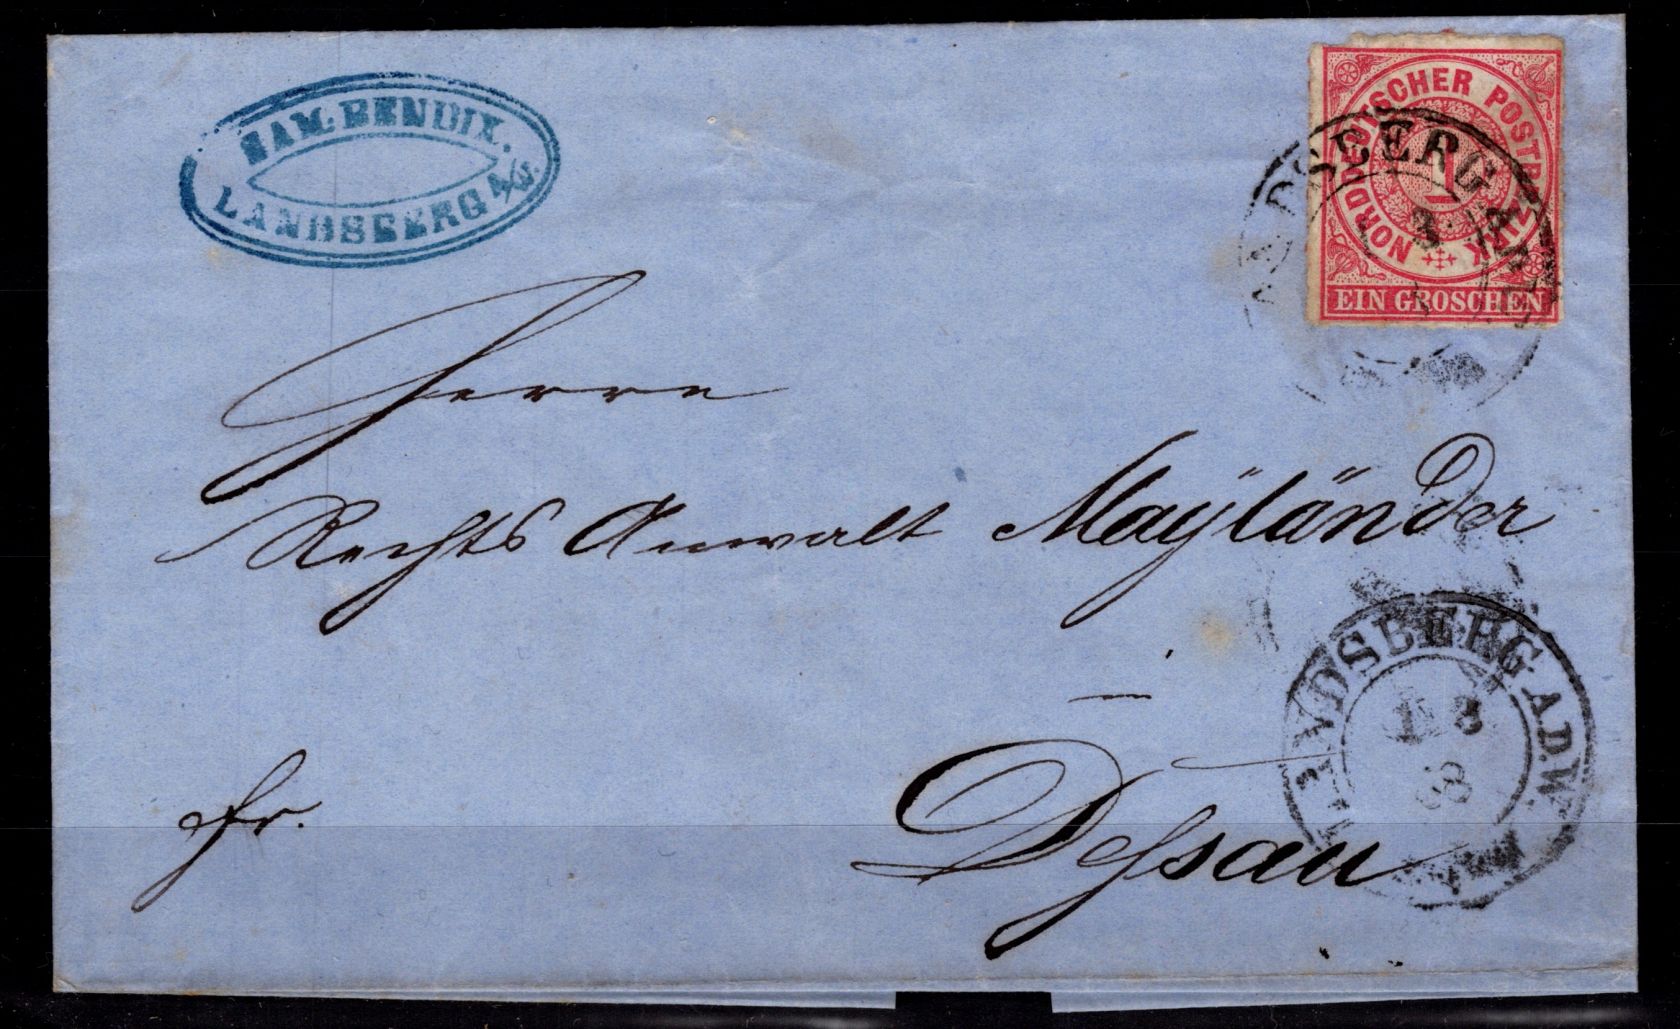 SAM: BENDIX.
LANDSBERG a/W.
NORDDEUTSCHER POSTBEZIRK
1
EIN GROSCHEN
Herrn
Rechts Anwalt Mayländer
in
Dessau
fr.
LANDSBERG A.D.W.
68